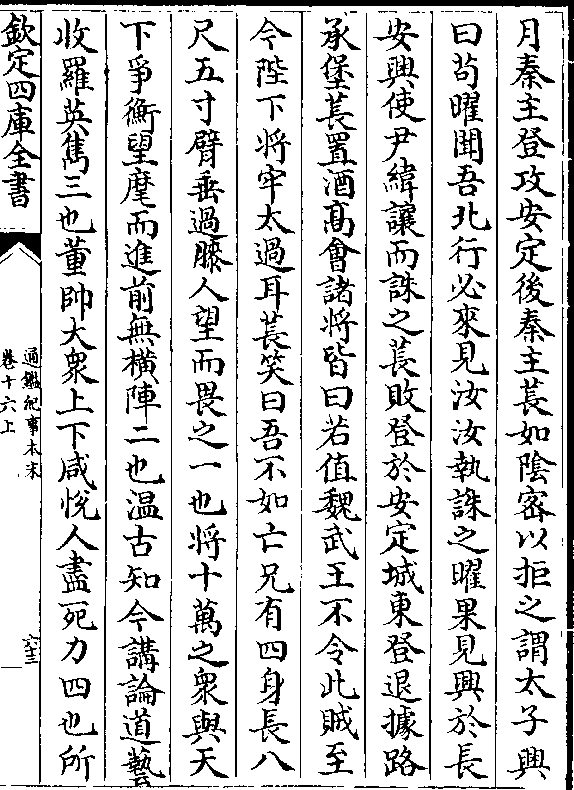 月秦主登攻安定後秦主萇如隂宻以拒之謂太子興
曰茍曜聞吾北行必來見汝汝執誅之曜果見興於長
安興使尹緯讓而誅之萇敗登於安定城東登退據路
承堡萇置酒髙㑹諸将皆曰若值魏武王不令此賊至
今陛下将牢太過耳萇笑曰吾不如亡兄有四身長八
尺五寸臂垂過膝人望而畏之一也将十萬之衆與天
下爭衡望麾而進前無横陣二也温古知今講論道藝
收羅英雋三也董帥大衆上下咸悅人盡死力四也所
欽定四庫全書
通鑑紀事本末
卷十六上
六三